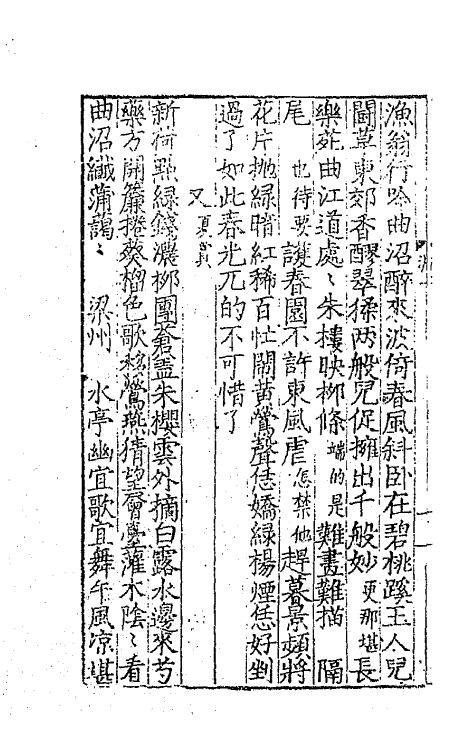 漁翁行吟曲沼醉來波倚春風斜卧在碧桃蹊玉人兒
閙草東郊香醪翠揉两般兒促擁出千般妙 更那堪長
樂苑曲江道處〻朱樓映栁條 端的是難畫難描 隔
尾 也待要護春園不許東風虐 怎禁他趕暮景頻將
花片抛綠暗紅稀百忙閙黄鶯聲恁嬌綠楊煙恁好剉
過了如此春光兀的不可惜了
又 夏賞
新荷㸃綠錢濃栁團蒼盖朱櫻雲外摘白露水邊來芍
藥方開簾捲葵榴色歌鶯燕猜望層巒灌木陰〻看
曲沼纖蒲藹〻 梁州 水亭幽宜歌宜舞午風凉堪